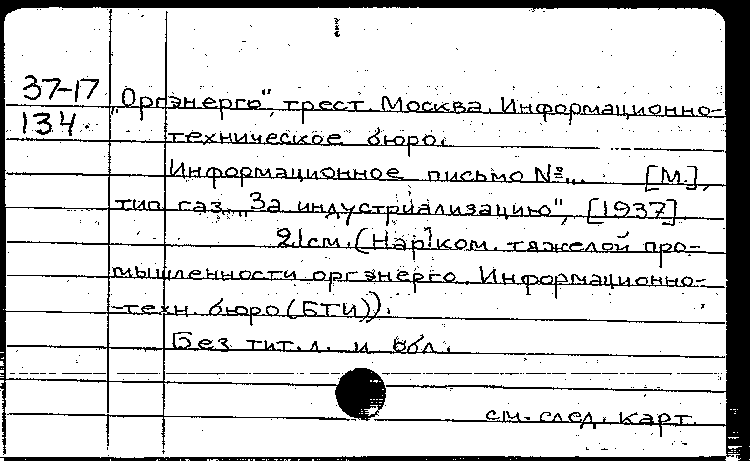 37-17
134.
„Оргэнерго", трест. Москва. Информационно-
техническое бюро.
Информационное письмо №... [М.],
тип. газ. „За индустриализацию", [1937].
21см. (Нар ком. тяжелой про-
мышленности оргэнерго. Информационно-
-техн. бюро (БТИ)).
Без тит.л. и обл.
см. след. карт.